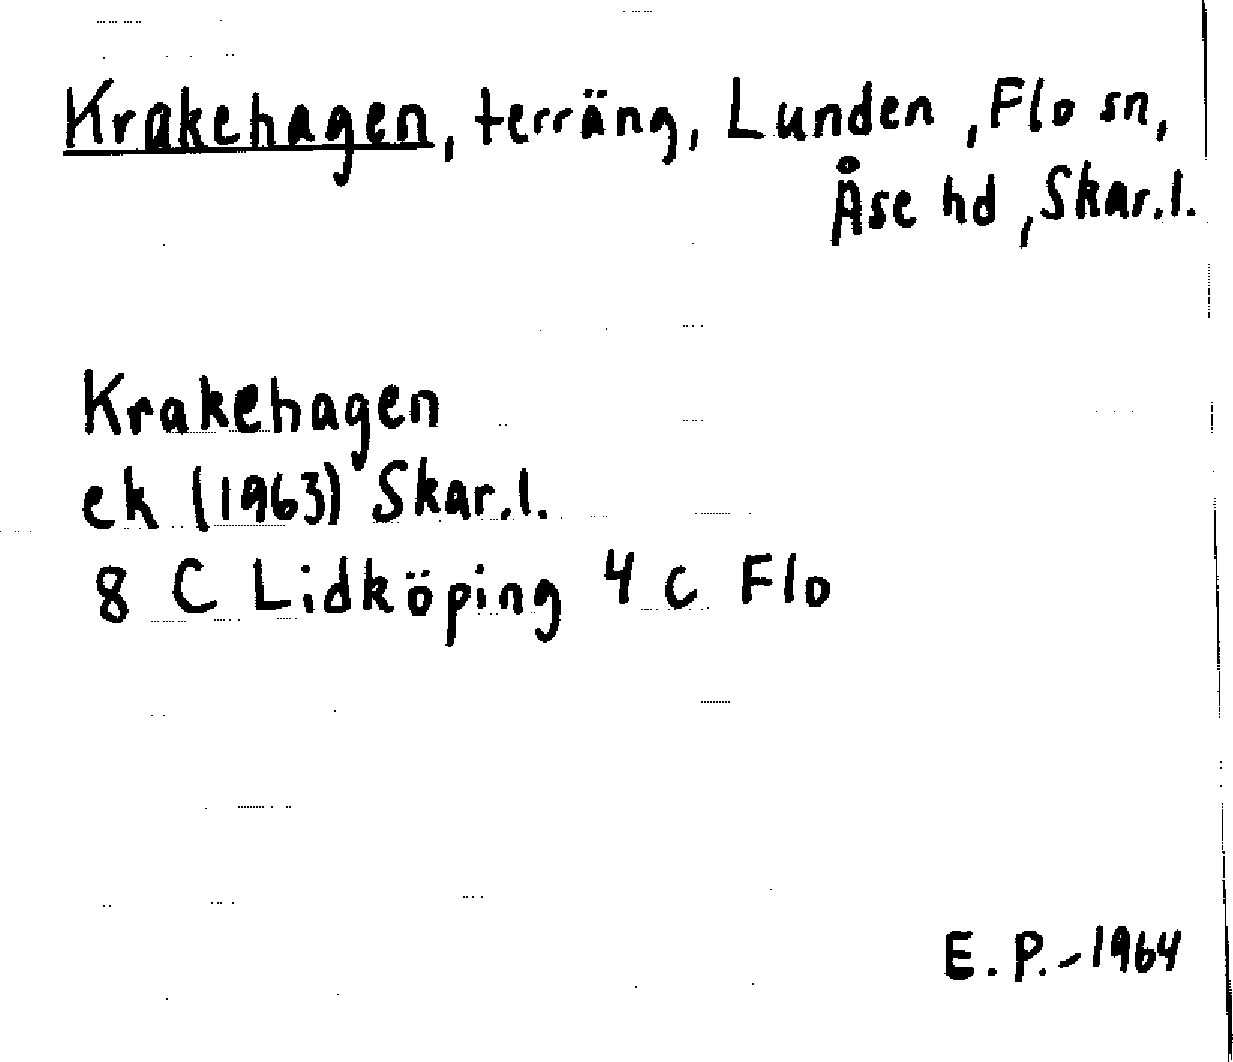 Krakehagen, terräng, Lunden, Flo sn,
Åse hd, Skar.l.
Krakehagen
ek (1963) Skar.l.
8 C Lidköping 4 c Flo
E.P.-1964